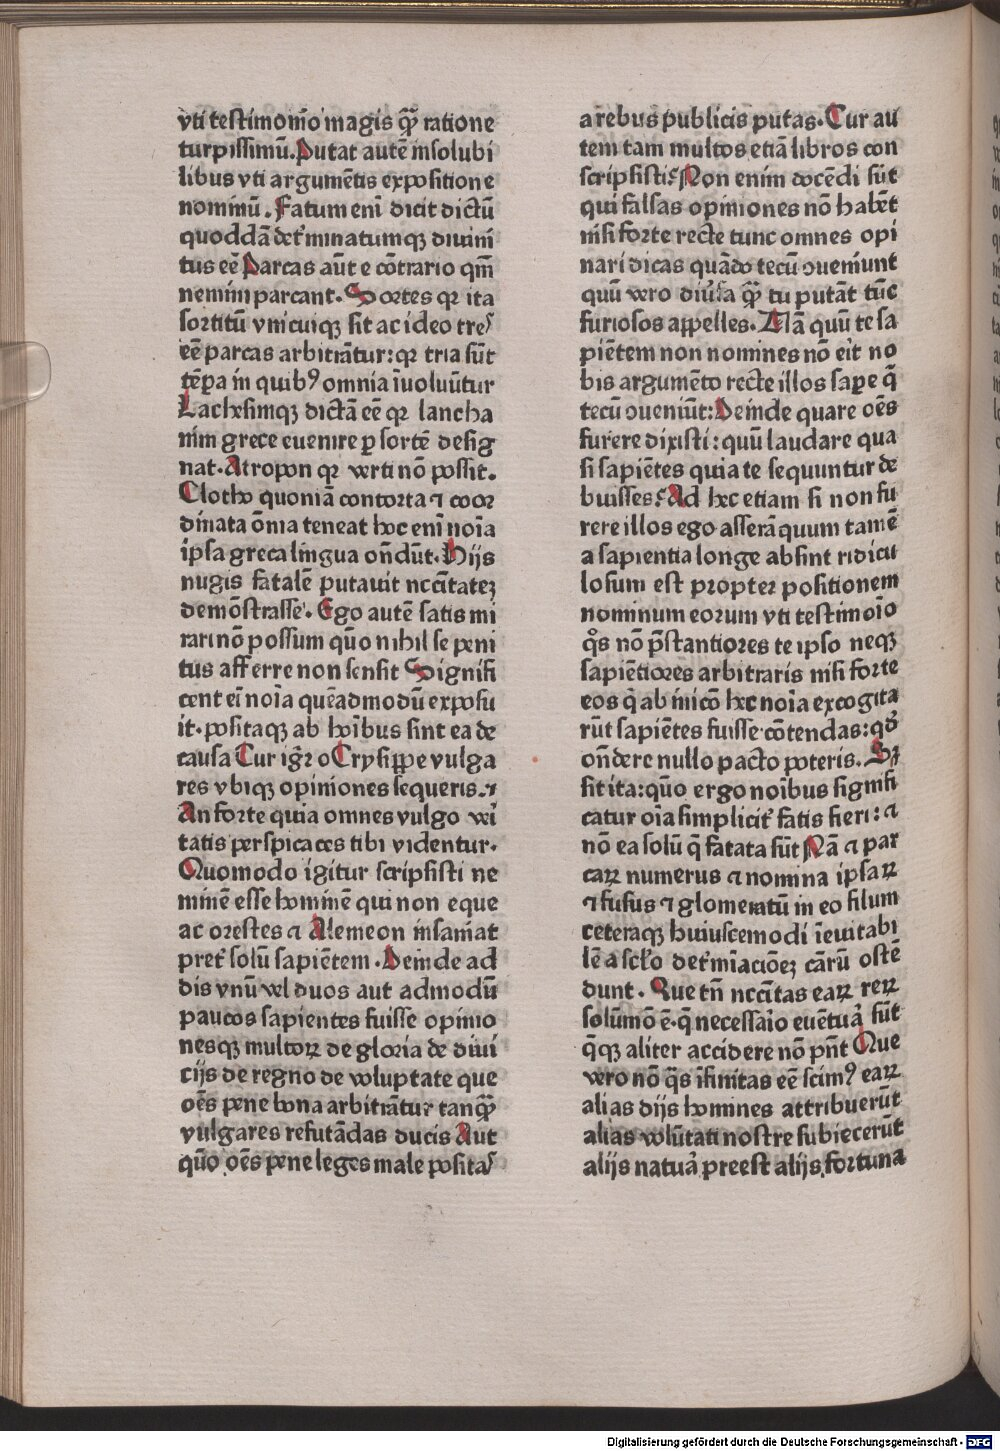 vti testimoīno magis q̄ꝫ ratione
turpissimū. Putat autē insolubi
libus vti argumētis expositione
nominū. Fatum eni dicit dictū
quoddā det'minatumqꝫ diuini
tus eē Parcas aūt e cōtrario qm̄
nemini parcant. Sortes qꝛ ita
sortitū vnicuiqꝫ sit ac ideo tres
eē parcas arbitrātur: qꝛ tria sūt
tēꝑa in quibꝰ omnia īuoluūtur
Lachesimqꝫ dictā eē qꝛ lancha
nim grece euenire ꝑ sortē desig
nat. Atropon qꝛ verti nō possit.
Clotho quoniā contorta ⁊ coor
dinata ōnia teneat hoc eni noīa
ipsa greca lingua on̄dūt. Hijs
nugis fatalē putauit nccītateꝫ
demōstrasse. Ego autē satis mi
rari nō possum quō nihil se peni
tus afferre non sensit Signifi
cent ei noīa quēadmodū exposu
it. positaqꝫ ab hoībus sint ea de
causa Cur igr̄ o Crysippe vulga
res vbiqꝫ opiniones sequeris. ⁊
An forte quia omnes vulgo veri
tatis perspicaces tibi videntur.
Quomodo igitur scripsisti ne
minē esse hominē qui non eque
ac orestes ⁊ Alemeon insaniat
pret' solū sapiētem. Deinde ad
dis vnū vel duos aut admodū
paucos sapientes fuisse opinio
nesqꝫ multoꝝ de gloria de diui
cijs de regno de voluptate que
oēs pene bona arbitrātur tanq̄ꝫ
vulgares refutādas ducis Aut
quō oēs pene leges male positas
a rebus publicis putas. Cur au
tem tam multos etiā libros con
scripsisti? Non enim docēdi sūt
qui falsas opiniones nō habēt
nisi forte recte tunc omnes opi
nari dicas quādo tecū ꝯueniunt
quū vero diu'sa q̄ꝫ tu putāt tūc
furiosos appelles. Nā quū te sa
piētem non nomines nō eit no
bis argumēto recte illos saꝑe q̄
tecū ꝯueniūt: Deinde quare oēs
furere dixisti: quū laudare qua
si sapiētes quia te sequuntur de
buisses? Ad hec etiam si non fu
rere illos ego asserā quum tamē
a sapientia longe absint ridicu
losum est propter positionem
nominum eorum vti testimoīo
q̊s nō p̄stantiores te ipso neqꝫ
sapiētiores arbitraris nisi forte
eos q̄ ab inicō hec noīa excogita
rūt sapiētes fuisse cōtendas: qd̓
on̄dere nullo pacto poteris. Sꝫ
sit ita: quō ergo noībus signifi
catur oīa simplicit' fatis fieri: ⁊
nō ea solū q̄ fatata sūt Nā ⁊ par
caꝝ numerus ⁊ nomina ipsaꝝ
⁊ fusus ⁊ glomeratū in eo filum
ceteraqꝫ huiuscemodi īeuitabi
lē a sclo det'miacioēꝫ carū ostē
dunt. Que tn̄ nccītas eaꝝ reꝝ
solūmō ē. q̄ necessaīo euētua sūt
q̄qꝫ aliter accidere nō pn̄t Que
vero nō q̄s īfinitas eē scimꝰ eaꝝ
alias dijs homines attribuerūt
alias volūtati nostre subiecerūt
alijs natura preest alijs fortuna
Digitalisierung gefördert durch die Deutsche Forschungsgemeinschaft - DFG